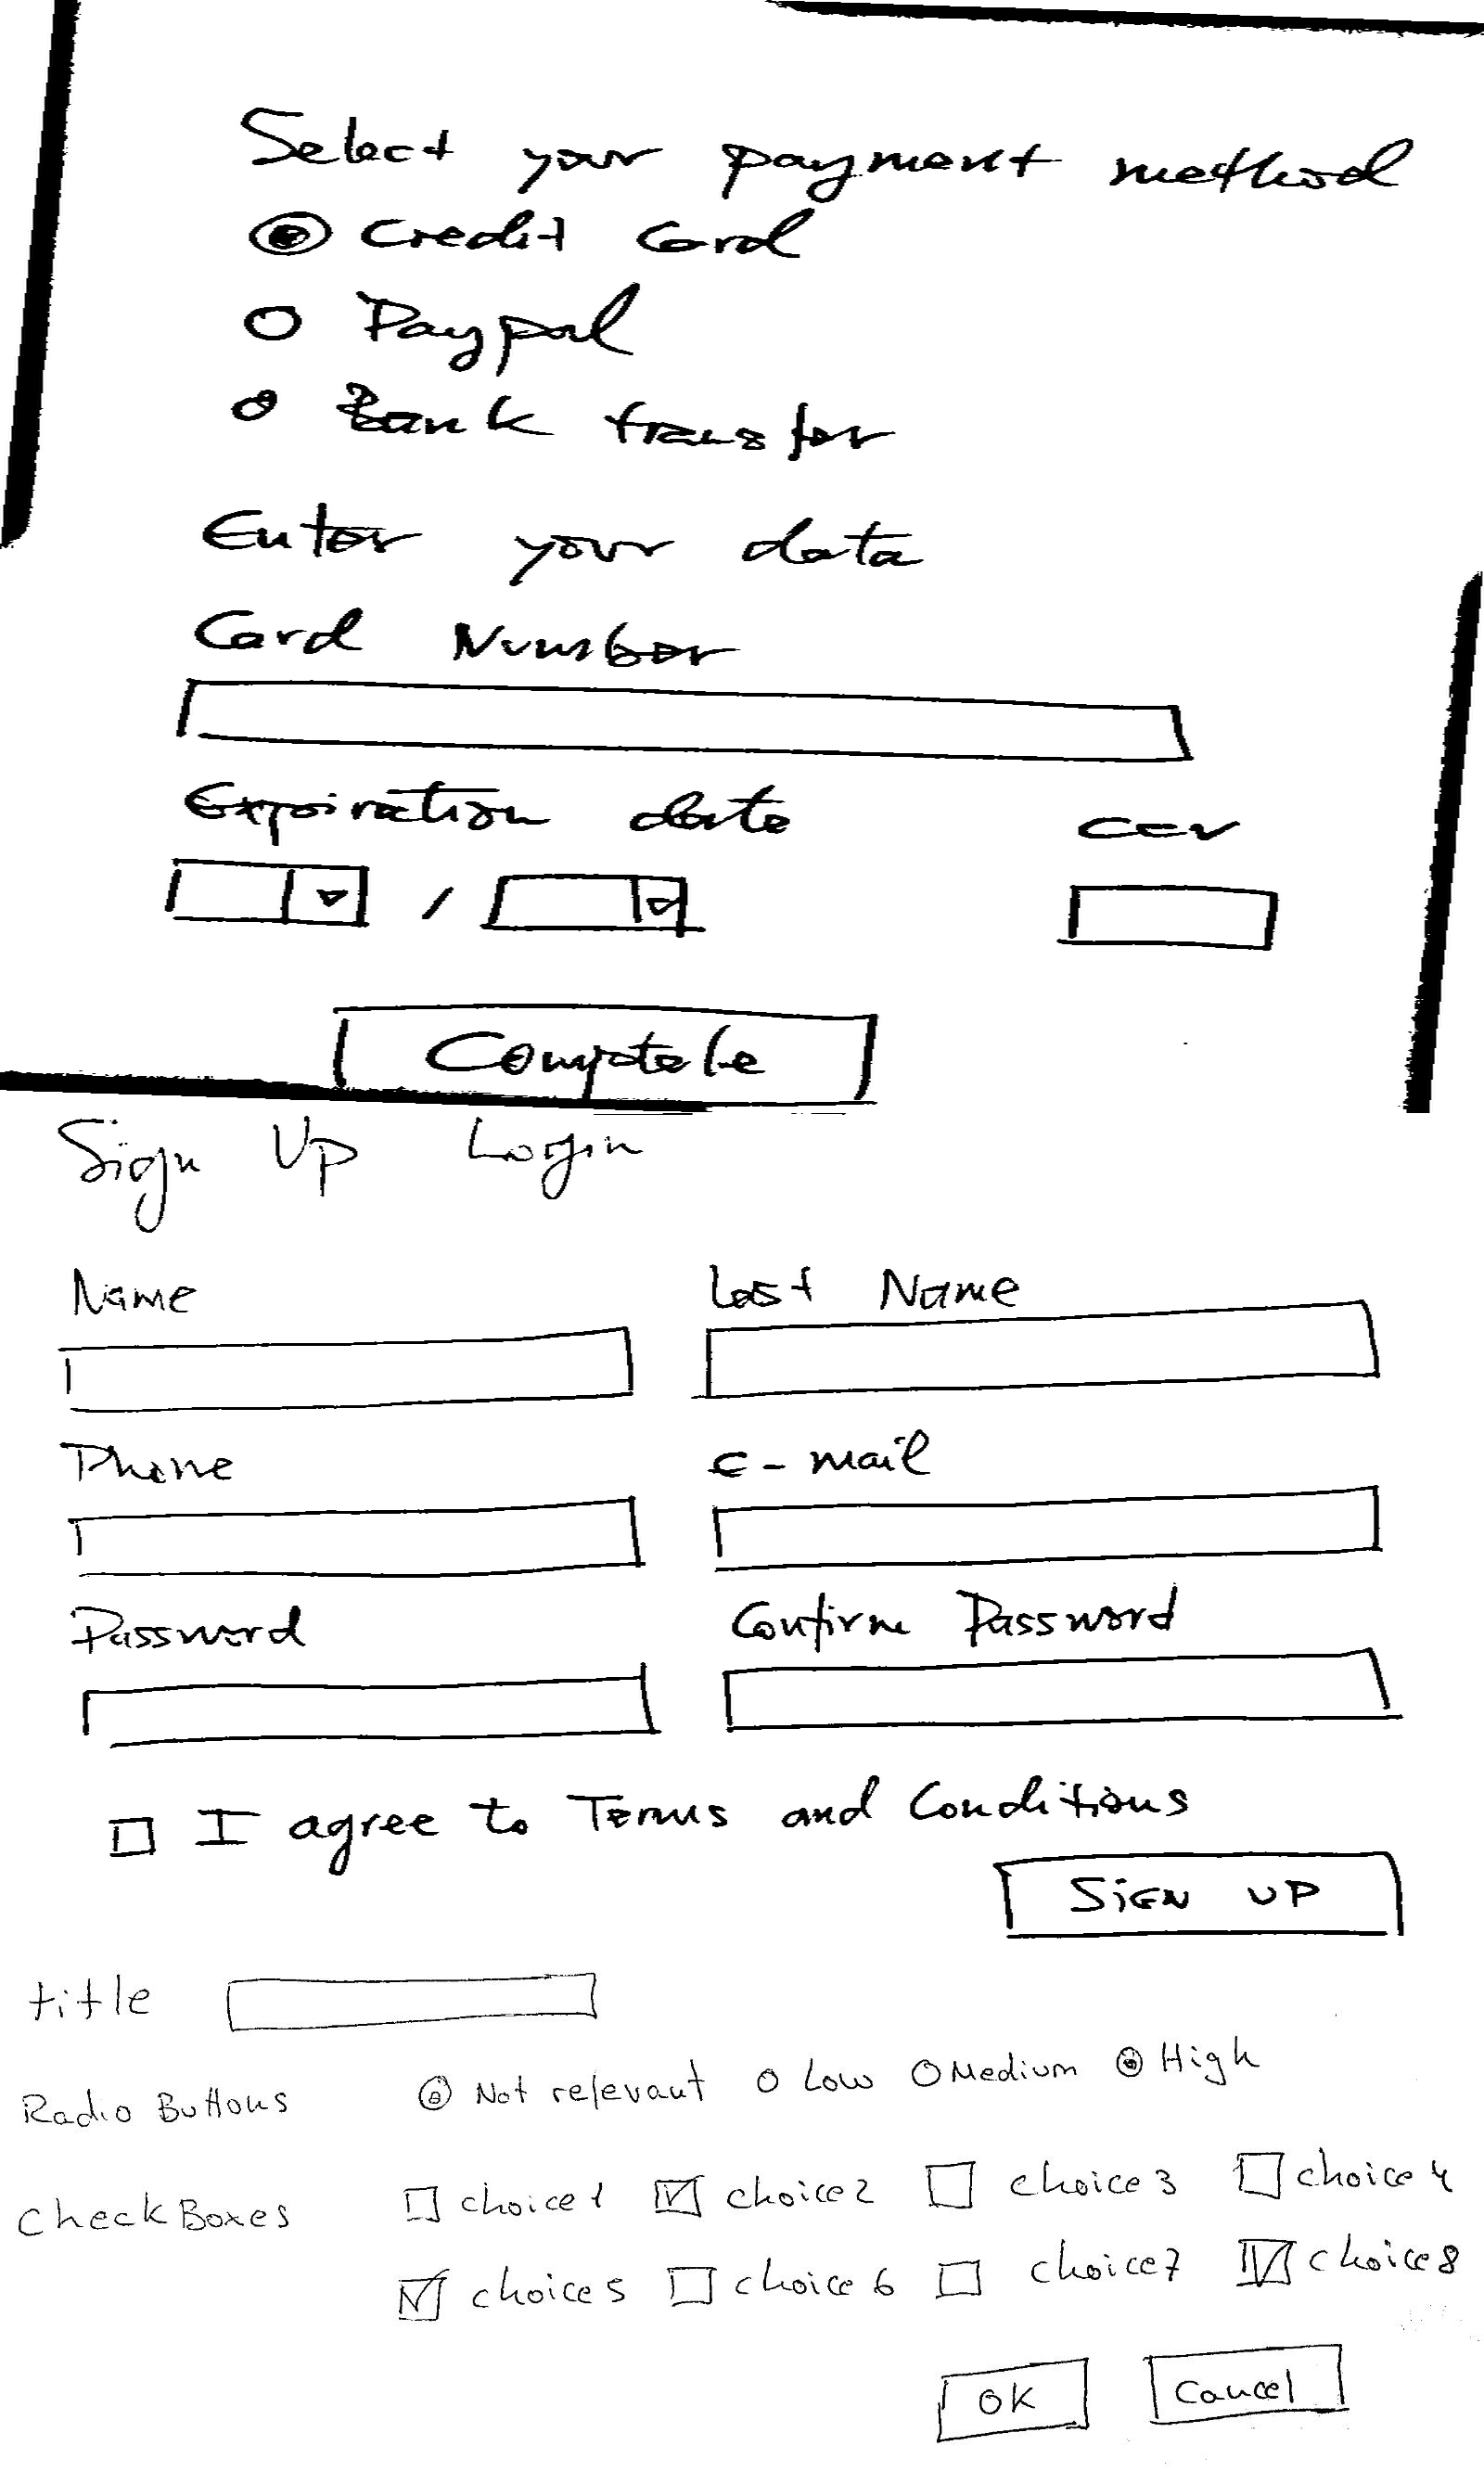 Select your payment method
Credit Card
Paypal
Bank transfer
Enter your data
Card Number
Expiration date CCV
/
Complete
Sign Up Login
Name Last Name
Phone e-mail
Password Confirm Password
I agree to Terms and Conditions
SiGN UP
title
Radio Buttons Not relevant Low Medium High
Check Boxes choice 1 choice 2 choice 3 choice 4
choice 5 choice 6 choice 7 choice 8
OK Cancel